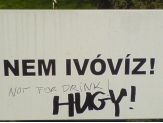 NEM IVÓVÍZ!
NOT FOR DRINK!
HUGY!